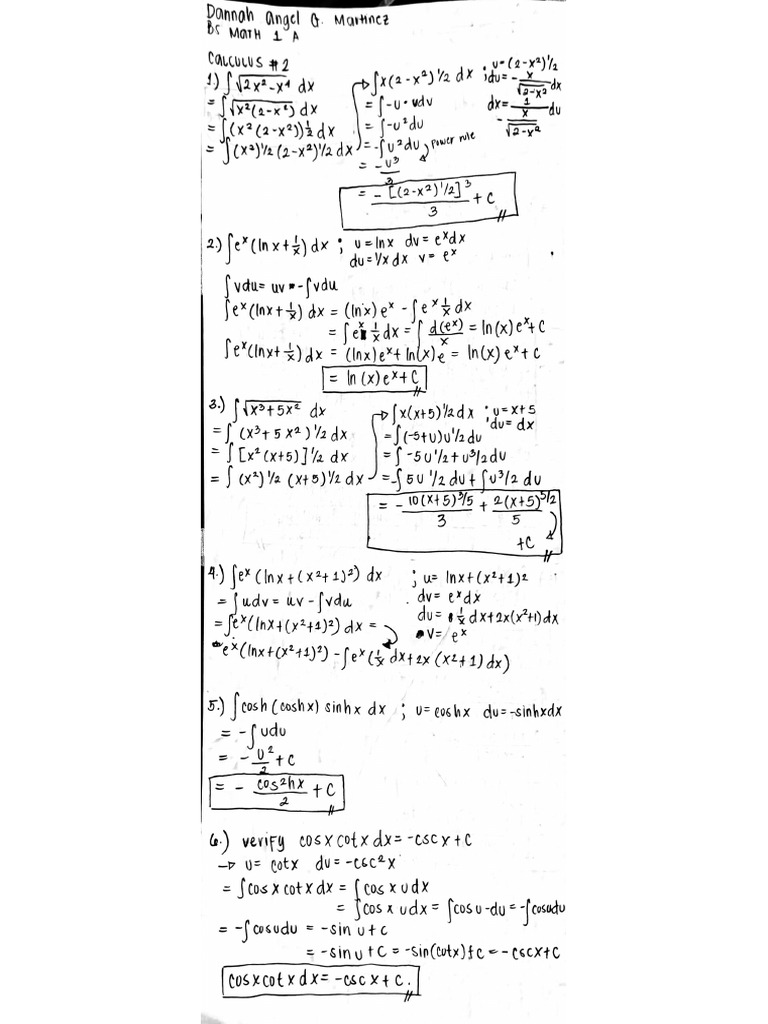 Dannah Angel G. Martinez
BS MATH 1 A
CALCULUS #2
1) ∫√(2x²-x⁴) dx
= ∫√(x²(2-x²)) dx
= ∫(x²(2-x²))½ dx
= ∫(x²)1/2 (2-x²)1/2 dx
→ ∫x(2-x²)1/2 dx ; u=(2-x²)1/2
du = - x/√(2-x²) dx
dx = 1/(- x/√(2-x²)) du
= ∫-u·udu
= ∫-u²du
= -∫u²du power rule
= -u³/3
= -[(2-x²)1/2]³/3 + C
2.) ∫eˣ(lnx+1/x) dx ; u=lnx dv=eˣdx
du=1/x dx v=eˣ
∫vdu=uv--∫vdu
∫eˣ(lnx+1/x) dx = (lnx)eˣ - ∫eˣ 1/x dx
= ∫eˣ 1/x dx = ∫d(eˣ)/x = ln(x)eˣ+C
∫eˣ(lnx+1/x) dx = (lnx)eˣ+ln(x)e = ln(x)eˣ+C
= ln(x)eˣ+C
3.) ∫√(x³+5x²) dx
= ∫(x³+5x²)1/2 dx
= ∫[x²(x+5)]1/2 dx
= ∫(x²)1/2 (x+5)1/2 dx
→ ∫x(x+5)1/2 dx ; u=x+5
du=dx
= ∫(-5+u)u1/2 du
= ∫-5u1/2+u3/2du
= -∫5u1/2 du+∫u3/2 du
= -10(x+5)3/5/3 + 2(x+5)5/2/5
+C
4.) ∫eˣ(lnx+(x²+1)²) dx ; u=lnx+(x²+1)²
= ∫udv=uv-∫vdu dv=eˣdx
= ∫eˣ(lnx+(x²+1)²) dx = du=1/x dx+2x(x²+1)dx
v=eˣ
eˣ(lnx+(x²+1)²)-∫eˣ(1/x dx+2x(x²+1)dx)
5.) ∫cosh(coshx) sinhx dx ; u=coshx du=-sinhxdx
= -∫udu
= -u²/2+C
= -cos²hx/2 + C
6.) verify cosxcotxdx=-cscx+C
→ u=cotx du=-csc²x
= ∫cosxcotxdx = ∫cosxudx
= ∫cosxudx = ∫cosu-du = -∫cosudu
= -∫cosudu = -sinu+c
= -sinu+C = -sin(cotx)+c = -cscx+C
cosxcotxdx=-cscx+C.